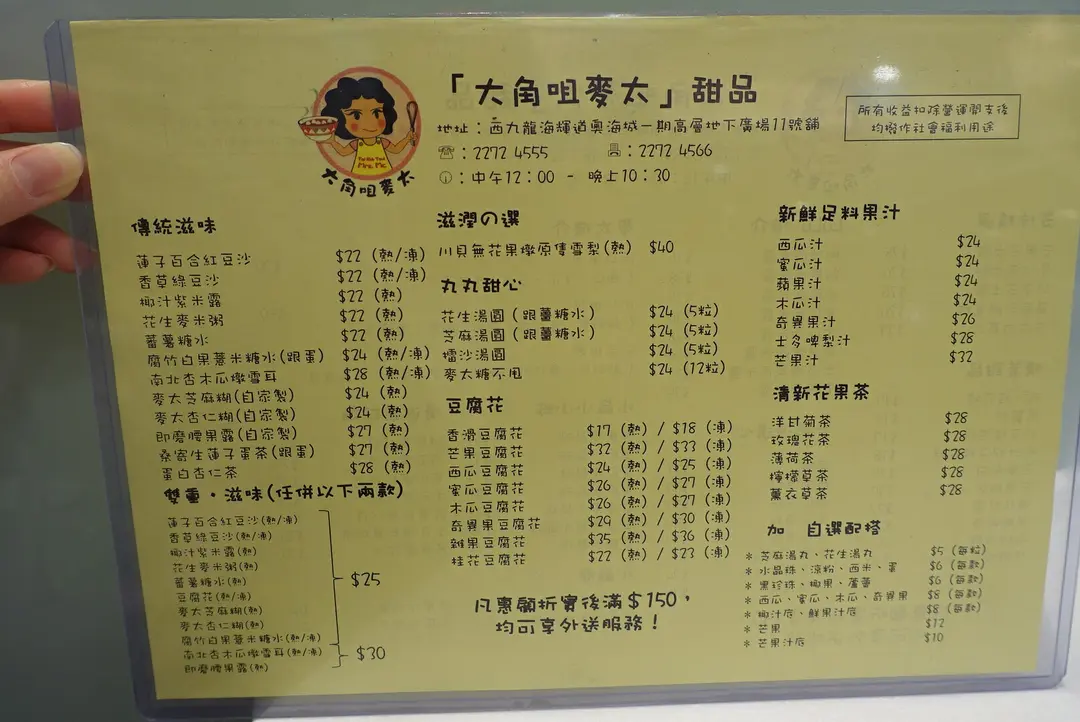 「大角咀麥太」甜品
地址：西九龍海輝道奧海城一期高層地下廣場11號舖
☎：2272 4555 📠：2272 4566
🕛：中午12：00 - 晚上10：30
所有收益扣除營運開支後
均撥作社會福利用途
Mrs. Mc
大角咀麥太
傳統滋味
蓮子百合紅豆沙 $22 (熱/凍)
香草綠豆沙 $22 (熱/凍)
椰汁紫米露 $22 (熱)
花生麥米粥 $22 (熱)
蕃薯糖水 $22 (熱)
腐竹白果薏米糖水(跟蛋) $24 (熱/凍)
南北杏木瓜燉雪耳 $28 (熱/凍)
麥太芝麻糊(自家製) $24 (熱)
麥太杏仁糊(自家製) $24 (熱)
即磨腰果露(自家製) $27 (熱)
桑寄生蓮子蛋茶(跟蛋) $27 (熱)
蛋白杏仁茶 $28 (熱)
雙重・滋味(任併以下兩款)
蓮子百合紅豆沙(熱/凍)
香草綠豆沙(熱/凍)
椰汁紫米露(熱)
花生麥米粥(熱)
蕃薯糖水(熱)
豆腐花(熱/凍)
麥太芝麻糊(熱)
麥太杏仁糊(熱)
腐竹白果薏米糖水(熱/凍)
$25
南北杏木瓜燉雪耳(熱/凍)
即磨腰果露(熱)
$30
滋潤の選
川貝無花果燉原隻雪梨(熱) $40
丸丸甜心
花生湯圓(跟薑糖水) $24 (5粒)
芝麻湯圓(跟薑糖水) $24 (5粒)
擂沙湯圓 $24 (5粒)
麥太糖不甩 $24 (12粒)
豆腐花
香滑豆腐花 $17 (熱) / $18 (凍)
芒果豆腐花 $32 (熱) / $33 (凍)
西瓜豆腐花 $24 (熱) / $25 (凍)
蜜瓜豆腐花 $26 (熱) / $27 (凍)
木瓜豆腐花 $26 (熱) / $27 (凍)
奇異果豆腐花 $29 (熱) / $30 (凍)
雜果豆腐花 $35 (熱) / $36 (凍)
桂花豆腐花 $22 (熱) / $23 (凍)
凡惠顧折實後滿$150，
均可享外送服務！
新鮮足料果汁
西瓜汁 $24
蜜瓜汁 $24
蘋果汁 $24
木瓜汁 $24
奇異果汁 $26
士多啤梨汁 $28
芒果汁 $32
清新花果茶
洋甘菊茶 $28
玫瑰花茶 $28
薄荷茶 $28
檸檬草茶 $28
薰衣草茶 $28
加 自選配搭
* 芝麻湯丸、花生湯丸 $5 (每粒)
* 水晶珠、涼粉、西米、蛋 $6 (每款)
* 黑珍珠、椰果、蘆薈 $6 (每款)
* 西瓜、蜜瓜、木瓜、奇異果 $8 (每款)
* 椰汁底、鮮果汁底 $8 (每款)
* 芒果 $12
* 芒果汁底 $10